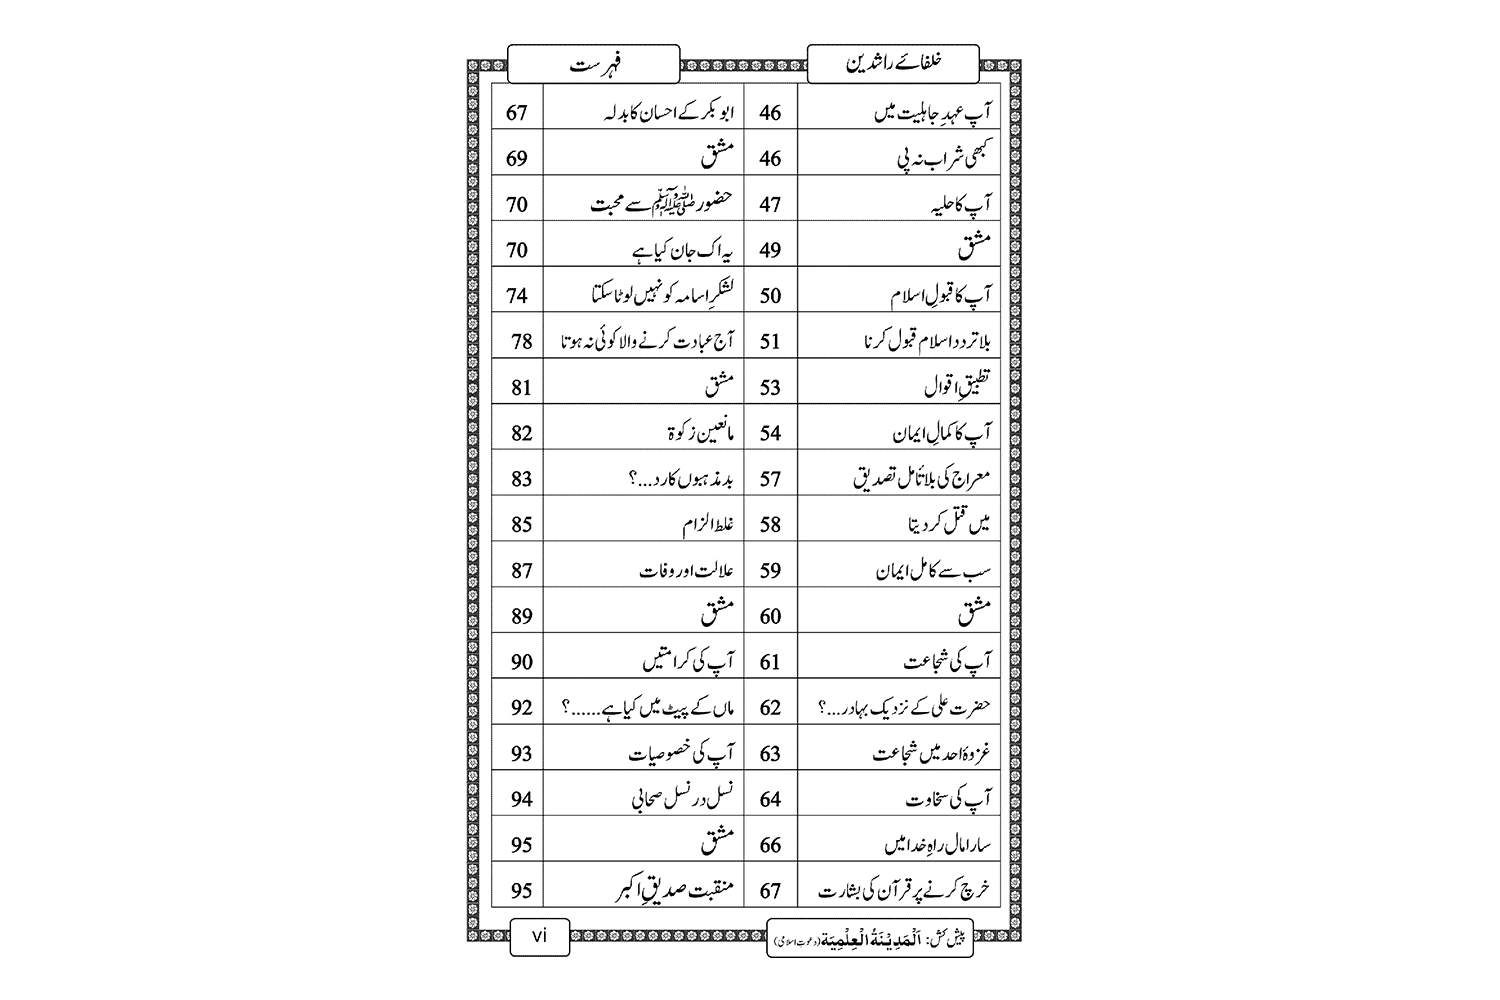 خلفائے راشدین
فہرست
آپ عہدِ جاہلیت میں 46
کبھی شراب نہ پی 46
آپ کا حلیہ 47
مشق 49
آپ کا قبولِ اسلام 50
بلا تردد اسلام قبول کرنا 51
تطبیقِ اقوال 53
آپ کا کمالِ ایمان 54
معراج کی بلا تأمل تصدیق 57
میں قتل کر دیتا 58
سب سے کامل ایمان 59
مشق 60
آپ کی شجاعت 61
حضرت علی کے نزدیک بہادر...؟ 62
غزوۂ احد میں شجاعت 63
آپ کی سخاوت 64
سارا مال راہِ خدا میں 66
خرچ کرنے پر قرآن کی بشارت 67
ابو بکر کے احسان کا بدلہ 67
مشق 69
حضور ﷺ سے محبت 70
یہ اک جان کیا ہے 70
لشکرِ اسامہ کو نہیں لوٹا سکتا 74
آج عبادت کرنے والا کوئی نہ ہوتا 78
مشق 81
مانعین زکوۃ 82
بدمذہبوں کا رد...؟ 83
غلط الزام 85
علالت اور وفات 87
مشق 89
آپ کی کرامتیں 90
ماں کے پیٹ میں کیا ہے......؟ 92
آپ کی خصوصیات 93
نسل در نسل صحابی 94
مشق 95
منقبت صدیقِ اکبر 95
پیش کش: اَلْمَدِیْنَۃُ الْعِلْمِیَۃ (دعوتِ اسلامی)
vi